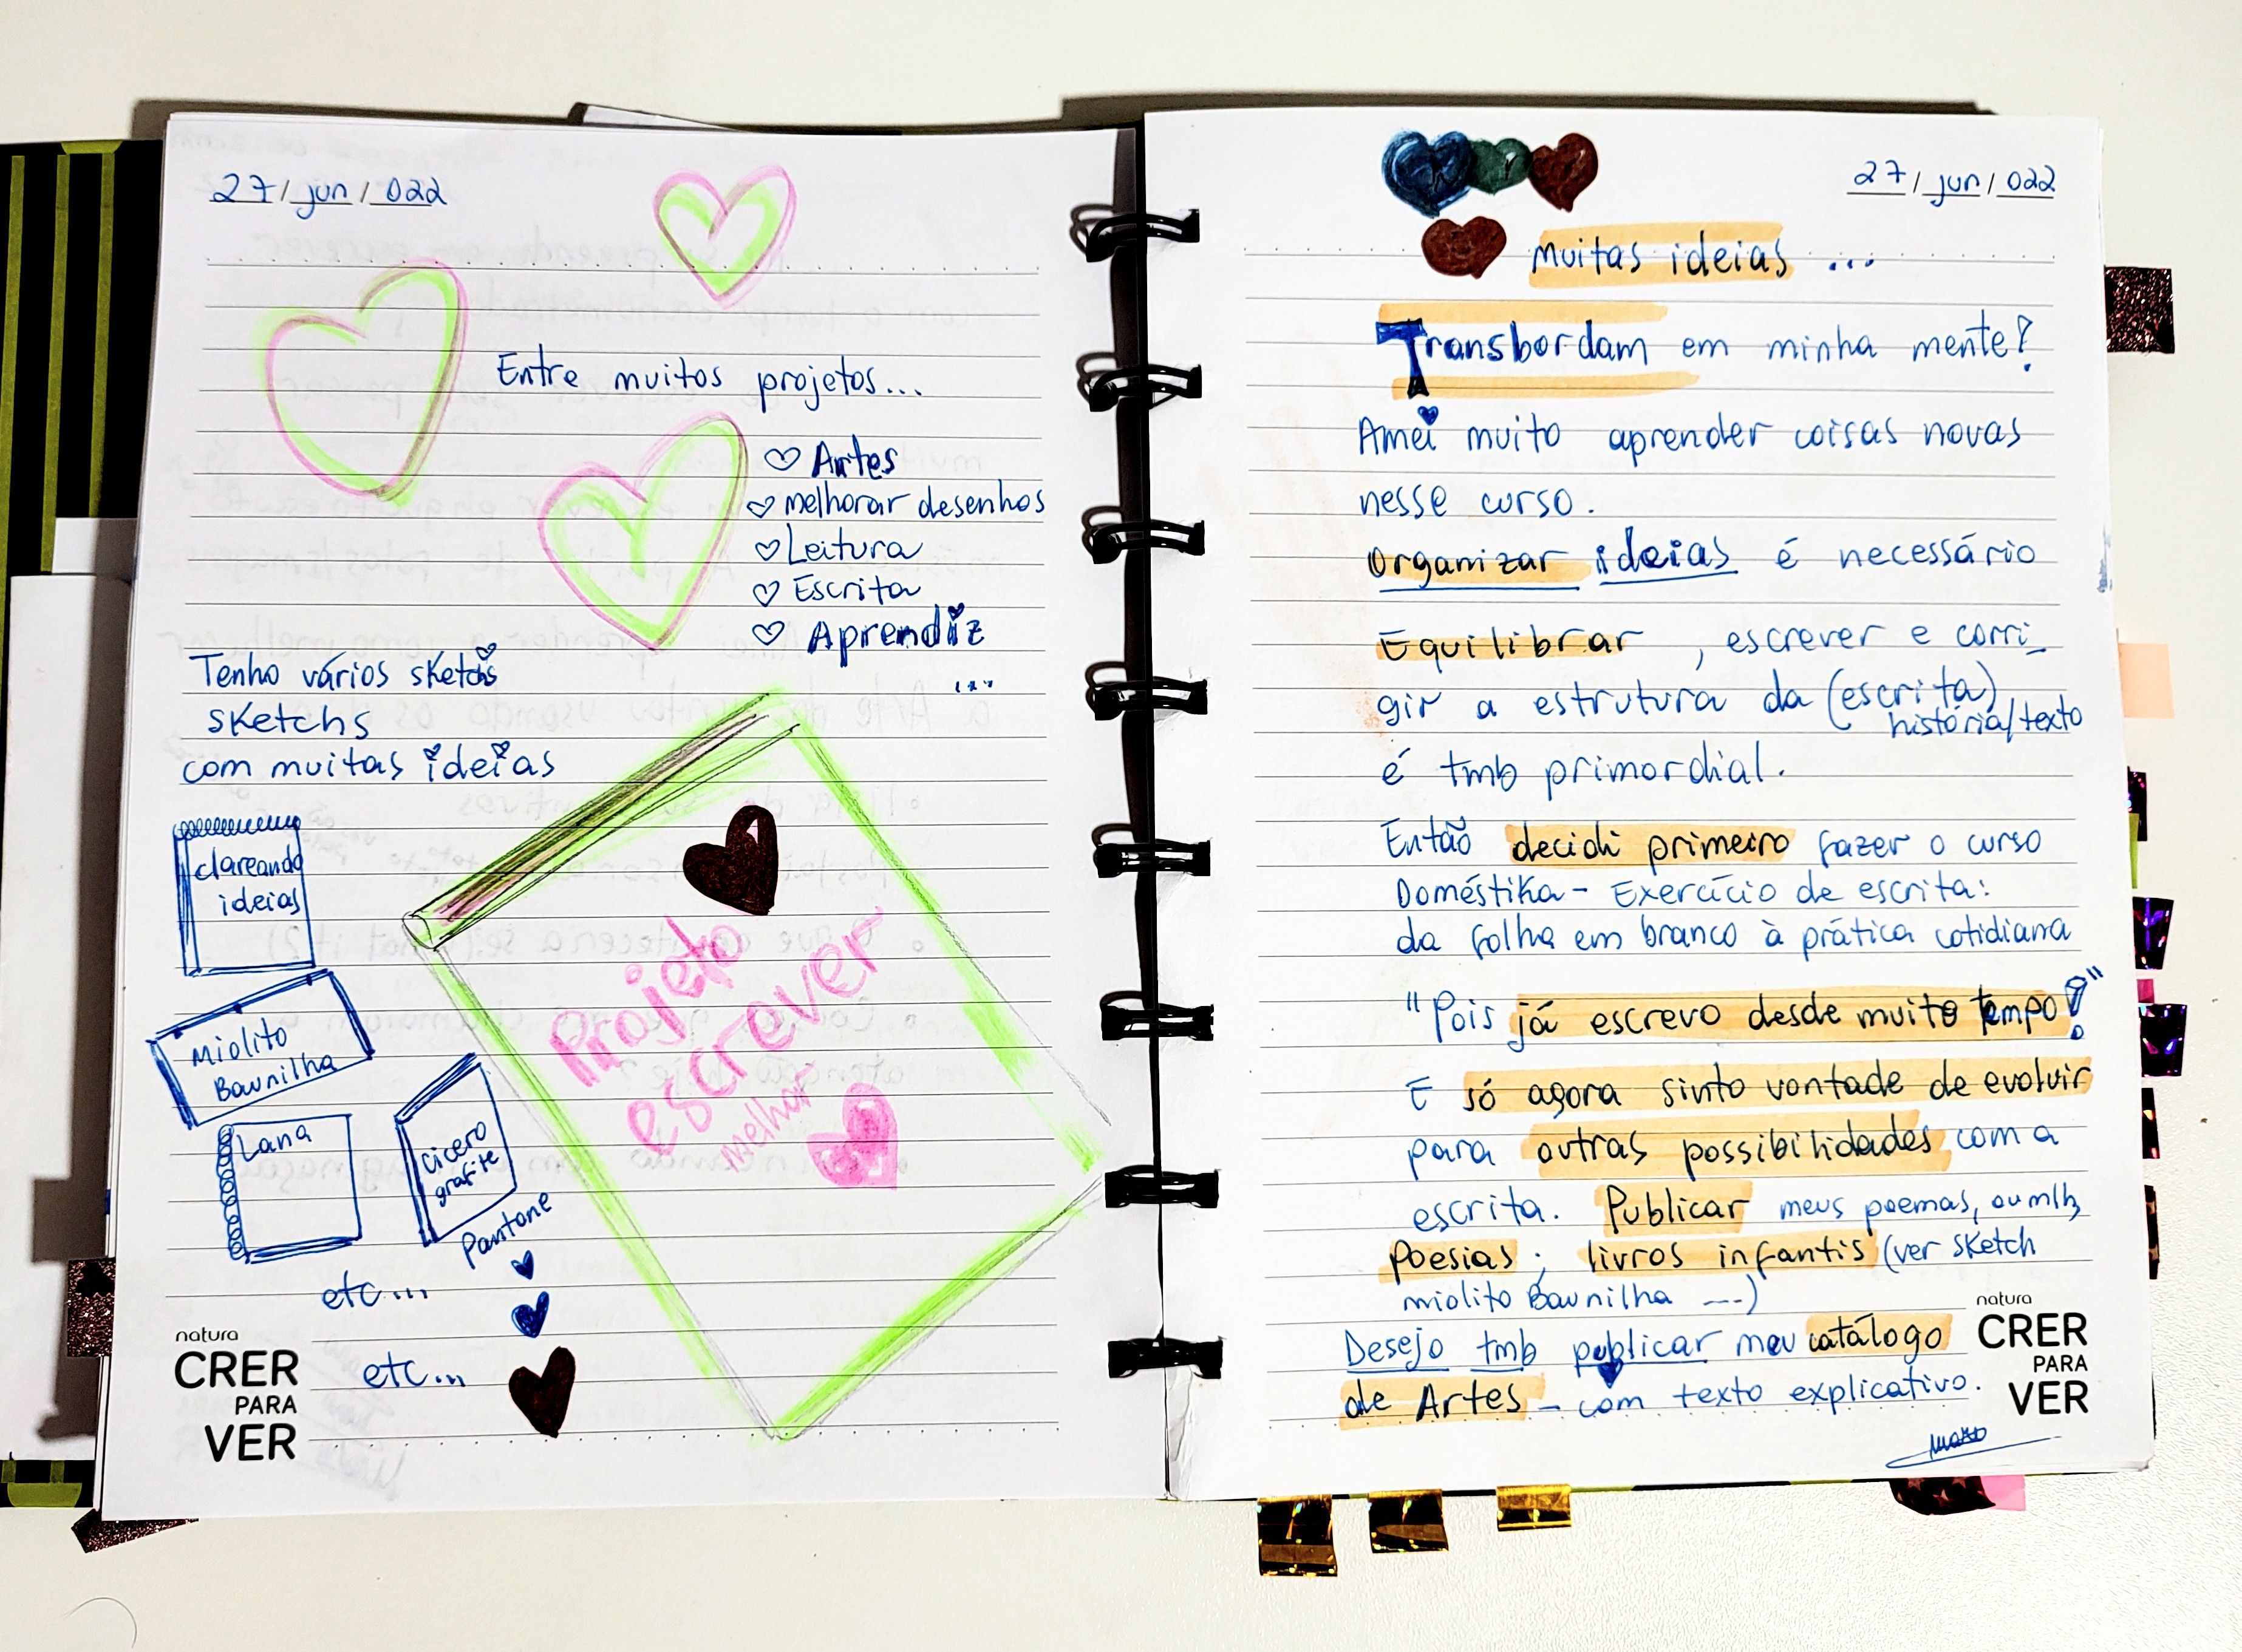 27 / jun / 022
Entre muitos projetos...
Artes
melhorar desenhos
Leitura
Escrita
Aprendiz
...
Tenho vários sketchs
sketchs
com muitas ideias
clareando
ideias
Miolito
Baunilha
Lana
Cícero
grafite
Pantone
etc...
etc...
Projeto
escrever
melhor
natura
CRER
PARA
VER
27 / jun / 022
Muitas ideias ...
Transbordam em minha mente?
Amei muito aprender coisas novas
nesse curso.
Organizar ideias é necessário
Equilibrar, escrever e corri-
gir a estrutura da (escrita)
história/texto
é tmb primordial.
Então decidi primeiro fazer o curso
Doméstika - Exercício de escrita:
da folha em branco à prática cotidiana
"Pois já escrevo desde muito tempo!"
E só agora sinto vontade de evoluir
para outras possibilidades com a
escrita. Publicar meus poemas, ou mlh
Poesias; livros infantis (ver sketch
miolito Baunilha ---)
Desejo tmb publicar meu catálogo
de Artes - com texto explicativo.
natura
CRER
PARA
VER